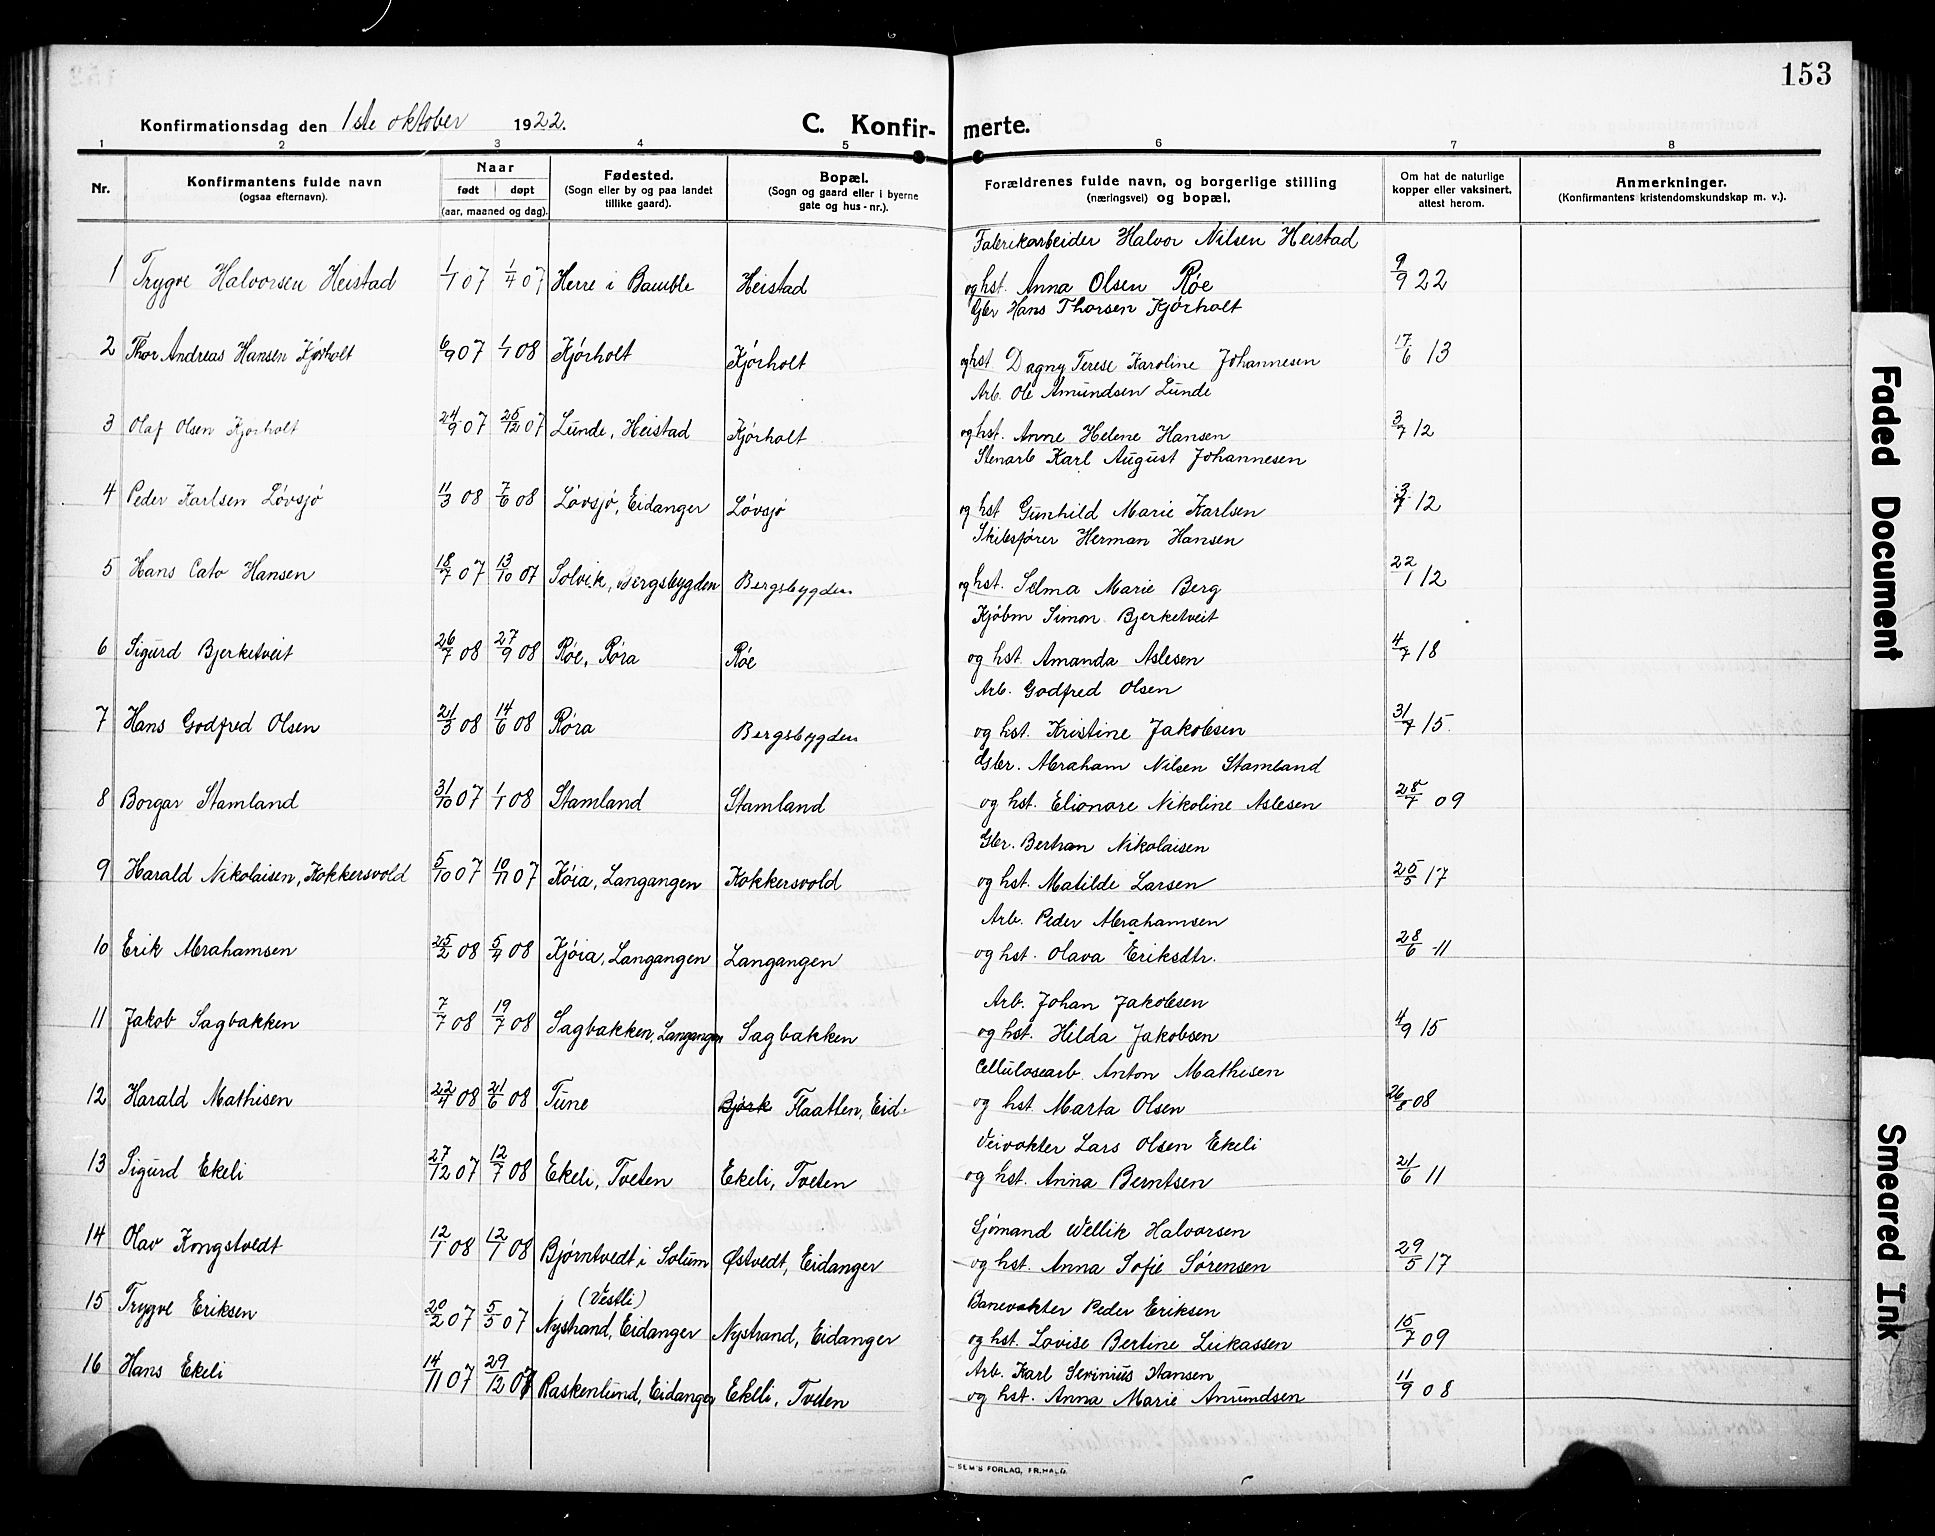 153
Konfirmationsdag den 1ste oktober 1922.
C. Konfir- merte.
1 2 3 4 5 6 7 8
Nr.
Konfirmantens fulde navn
(ogsaa efternavn).
Naar
født døpt
(aar, maaned og dag).
Fødested.
(Sogn eller by og paa landet
tillike gaard).
Bopæl.
(Sogn og gaard eller i byerne
gate og hus-nr.).
Forældrenes fulde navn, og borgerlige stilling
(næringsvei) og bopæl.
Om hat de naturlige
kopper eller vaksinert,
attest herom.
Anmerkninger.
(Konfirmantens kristendomskundskap m. v.).
Fabrikarbeider Halvor Nilsen Heistad
1 Trygve Halvorsen Heistad 1/1 07 1/4 07 Herre i Bamble Heistad og hst. Anna Olsen Røe 9/9 22
Gbr Hans Thorsen Kjørholt
2 Thor Andreas Hansen Kjørholt 6/9 07 1/1 08 Kjørholt Kjørholt og hst Dagny Terese Karoline Johannesen 17/6 13
Arb. Ole Amundsen Lunde
3 Olaf Olsen Kjørholt 24/9 07 25/12 07 Lunde, Heistad Kjørholt og hst. Anne Helene Hansen 3/7 12
Stenarb Karl August Johannesen
4 Peder Karlsen Løvsjø 11/3 08 7/6 08 Løvsjø, Eidanger Løvsjø og hst Gunhild Marie Karlsen 3/7 12
Skibsfører Herman Hansen
5 Hans Cato Hansen 18/7 07 13/10 07 Solvik, Bergsbygden Bergsbygden og hst. Selma Marie Berg 22/1 12
Kjøbm Simon Bjerketveit
6 Sigurd Bjerketveit 26/7 08 27/9 08 Røe, Røra Røe og hst. Amanda Aslesen 4/7 18
Arb. Godfred Olsen
7 Hans Godfred Olsen 21/3 08 14/6 08 Røra Bergsbygden og hst. Kristine Jakobsen 31/7 15.
Gbr. Abraham Nilsen Stamland
8 Borgar Stamland 31/10 07 1/1 08 Stamland Stamland og hst. Elionore Nikoline Aslesen 28/7 09
Gbr. Berthan Nikolaisen
9 Harald Nikolaisen, Kokkersvold 5/10 07 10/11 07 Køia, Langangen Kokkersvold og hst. Matilde Larsen 25/5 17
Arb. Peder Abrahamsen
10 Erik Abrahamsen 25/2 08 5/4 08 Kjøia, Langangen Langangen og hst. Olava Eriksdtr. 28/6 11
Arb. Johan Jakobsen
11 Jakob Sagbakken 7/7 08 19/7 08 Sagbakken, Langangen Sagbakken og hst. Hilda Jakobsen 4/9 15
Cellulosearb. Anton Mathisen
12 Harald Mathisen 22/4 08 21/6 08 Tune Bjørk Flaatten, Eid. og hst Marta Olsen 26/8 08
Veivokter Lars Olsen Ekeli
13 Sigurd Ekeli 27/12 07 12/7 08 Ekeli, Tveten Ekeli, Tveten og hst. Anna Berntsen 21/6 11
Sjømand Wellik Halvorsen
14 Olav Kongstvedt 12/1 08 12/1 08 Bjørntvedt i Solum Østvedt, Eidanger og hst. Anna Sofie Sørensen 29/5 17
(Vestli) Banevokter Peder Eriksen
15 Trygve Eriksen 20/2 07 5/5 07 Nystrand, Eidanger Nystrand, Eidanger og hst. Lovise Bertine Lukassen 15/7 09
Arb. Karl Serinius Hansen
16 Hans Ekeli 14/11 07 29/12 07 Raskenlund, Eidanger Ekeli, Tveten og hst. Anna Marie Amundsen 11/9 08
SEM'S FORLAG, FR.HALD.
Faded Document
Smeared Ink